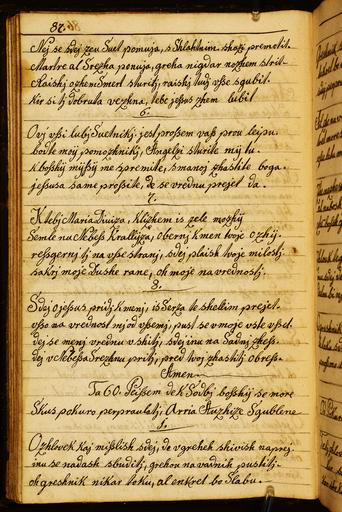 82.
Nej se sdej zeu Suet ponuja, s Shlahtnim shaz premetit.
Martre al Srezha ponuja, greha nigdar nozhem sturit
Raiskij ozhem Smert sturitj, raiskj tudj vse sgubit.
Kir si tj dobruta vezhna, tebe jesus zhem lubit
6.
Ovj vsi lubj Suetnikj. jest prossem vass prou lejpu.
bodte moij pomozhnikj, Angelzi sturite mij tu.
K bosskij mijsij me spremite, s manoj zhastite boga.
jesusa same prossite, de se vrednu prejet da.
7.
K tebj Maria Diviza, klizhem is zele mozhij
Semle nu Nebess Krallijza, obernj k men tvoje ozhij.
ressgernj tj na vsse stranj, sdej plaish tvoje milostj.
sakrj moje Dushe rane, oh moje na vrednostj.
8.
Sdej o jessus pridj k menj, is Serza te shellim prejet.
vsse na vrednost mj od vsemj, pust se v moje vste vset
dej se menj vrednu v shitj, sdej inu na Sadnj zhess.
dej v Nebessa Srezhnu pritj, pred tvoj zhastitj obress.
Amen
Ta 60. Peissem de k Sodbj bosshij se more
Skus pokuro perpraulatj, Arria Stuzhize Sgublene
1.
O zhlovek kaj mislish sdej, de v grehek shivish naprej.
inu se nadash sbuditj, grehou na vadnik pustitj.
oh greshnik nikar toku, al enkret bo Slabu.